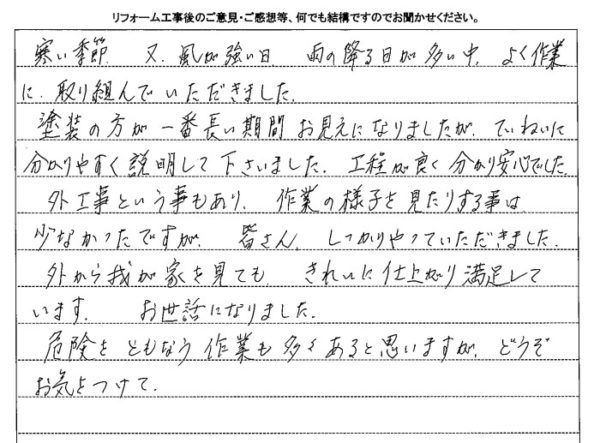 リフォーム工事後のご意見・ご感想等、何でも結構ですのでお聞かせください。
寒い季節、又、風が強い日、雨の降る日が多い中、よく作業
に、取り組んでいただきました。
塗装の方が一番長い期間お見えになりましたが、ていねいに
分かりやすく説明して下さいました。工程が良く分かり安心でした。
外工事という事もあり、作業の様子を見たりする事は
少なかったですが、皆さん、しっかりやっていただきました。
外から我が家を見ても、きれいに仕上がり満足して
います。お世話になりました。
危険をともなう作業も多くあると思いますが、どうぞ
お気をつけて。